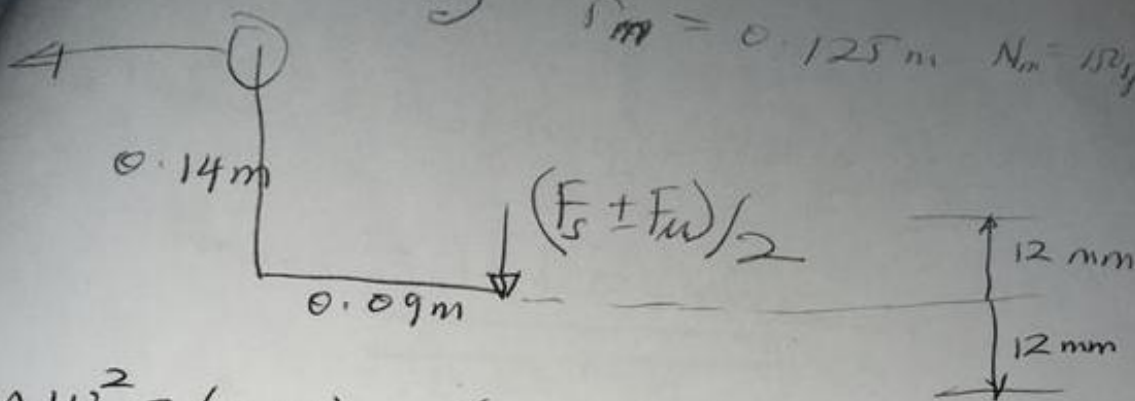 r_m = 0.125m N_m = 150
0.14m
(F_s ± F_w)/2
12 mm
0.09m
12 mm